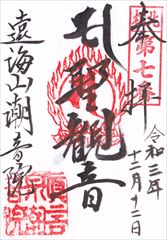 奉拝
第七
令和三年
十二月十二日
聖観音
遠海山潮音院